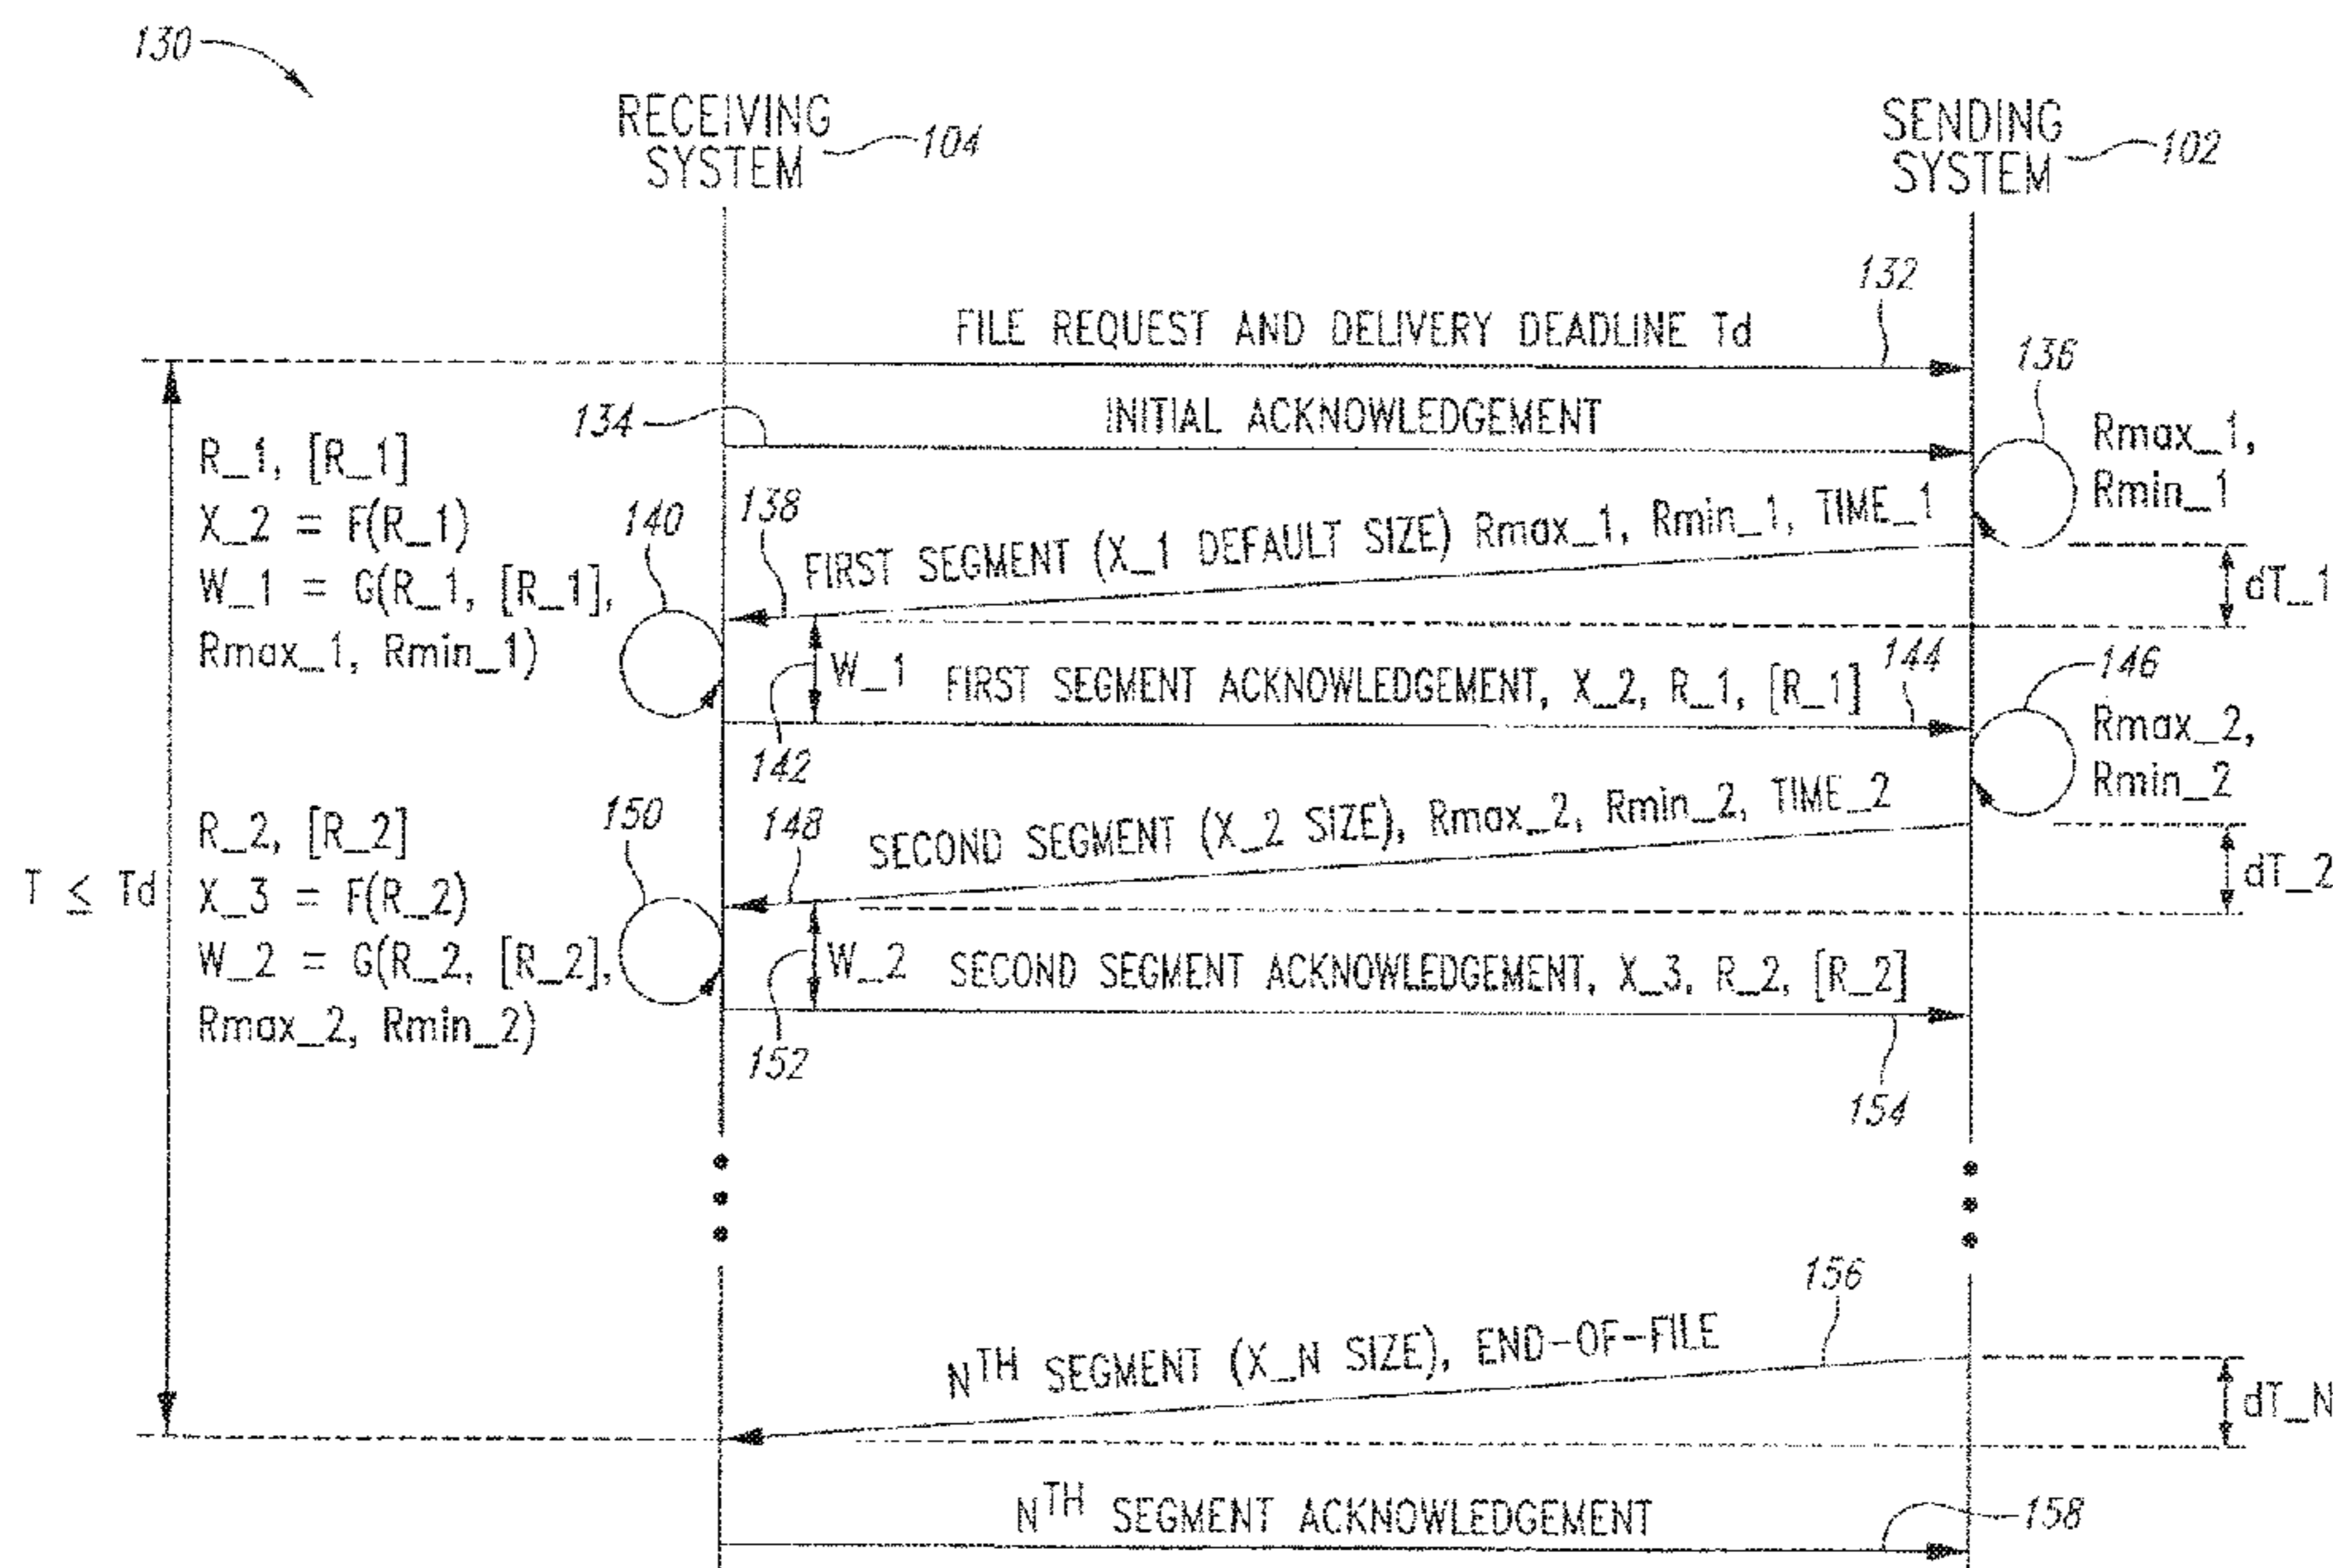 130
RECEIVING
SYSTEM
104
SENDING
SYSTEM
102
132
FILE REQUEST AND DELIVERY DEADLINE Td
136
134
INITIAL ACKNOWLEDGEMENT
Rmax_1,
Rmin_1
R_1, [R_1]
X_2 = F(R_1)
W_1 = G(R_1, [R_1],
Rmax_1, Rmin_1)
140
138
FIRST SEGMENT (X_1 DEFAULT SIZE) Rmax_1, Rmin_1, TIME_1
dT_1
W_1
144
FIRST SEGMENT ACKNOWLEDGEMENT, X_2, R_1, [R_1]
146
142
Rmax_2,
Rmin_2
T ≤ Td
R_2, [R_2]
X_3 = F(R_2)
W_2 = G(R_2, [R_2],
Rmax_2, Rmin_2)
150
148
SECOND SEGMENT (X_2 SIZE), Rmax_2, Rmin_2, TIME_2
dT_2
W_2
SECOND SEGMENT ACKNOWLEDGEMENT, X_3, R_2, [R_2]
152
154
156
NTH SEGMENT (X_N SIZE), END-OF-FILE
dT_N
NTH SEGMENT ACKNOWLEDGEMENT
158